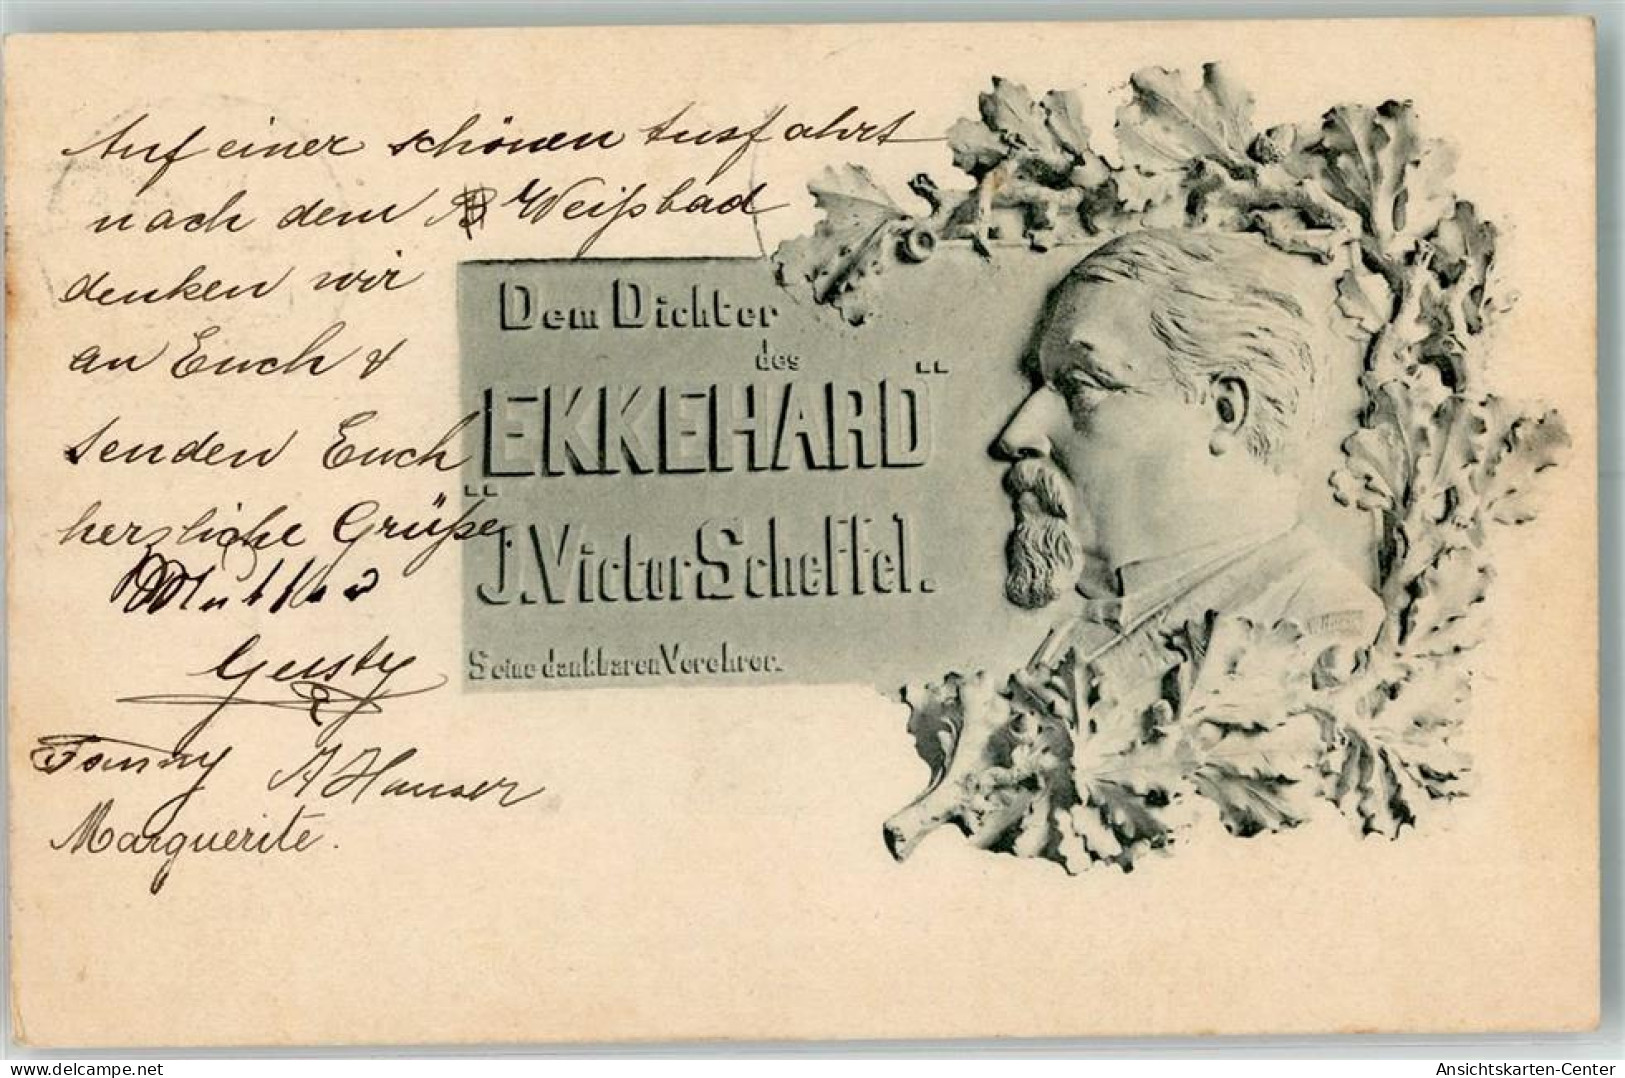 Auf einer schönen Ausfahrt
nach dem Weißbad
denken wir
an Euch &
senden Euch
herzliche Grüße.
Mutter
Gersty
Fanny A Hauser
Marguerite.
Dem Dichter
des
"EKKEHARD"
J. Victor Scheffel.
Seine dankbaren Verehrer.
oldthing
Ansichtskarten-Center